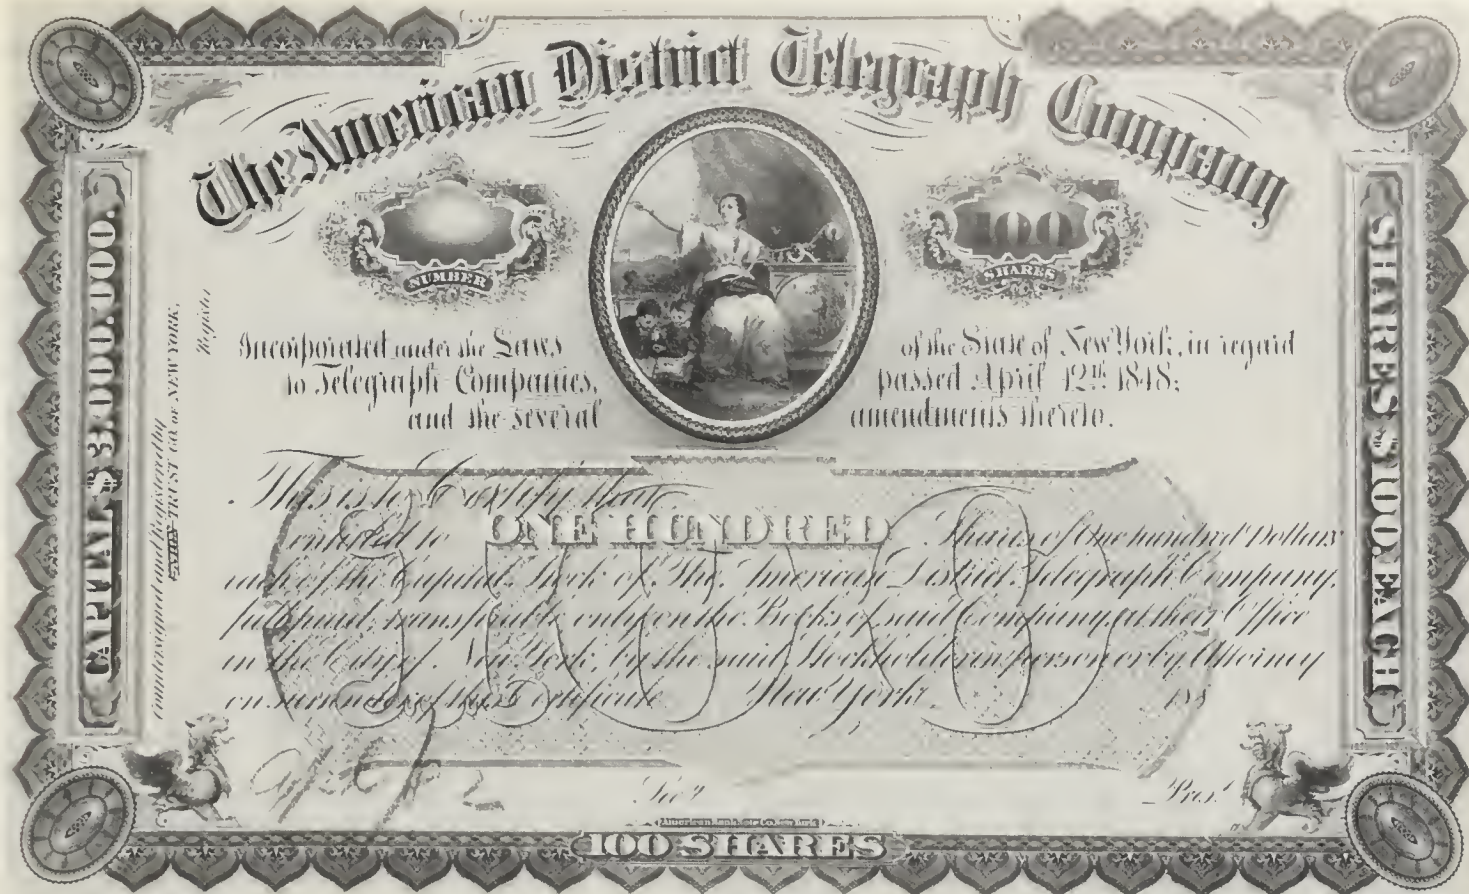 The American District Telegraph Company
NUMBER
100
SHARES
CAPITAL $3.000.000.
SHARES $100. EACH
Countersigned and Registered by
UNION TRUST CO. OF NEW YORK.
Register
Incorporated under the Laws of the State of New York, in regard
to Telegraph Companies, passed April 12th 1848;
and the several amendments thereto.
This is to Certify that
entitled to ONE HUNDRED Shares of One hundred Dollars
each of the Capital Stock of The American District Telegraph Company,
full paid, transferable only on the Books of said Company, at their Office
in the City of New York, by the said Stockholder in person or by Attorney
on surrender of this Certificate New York, 188
Secy.
Prest.
American Bank Note Co. New York
100 SHARES